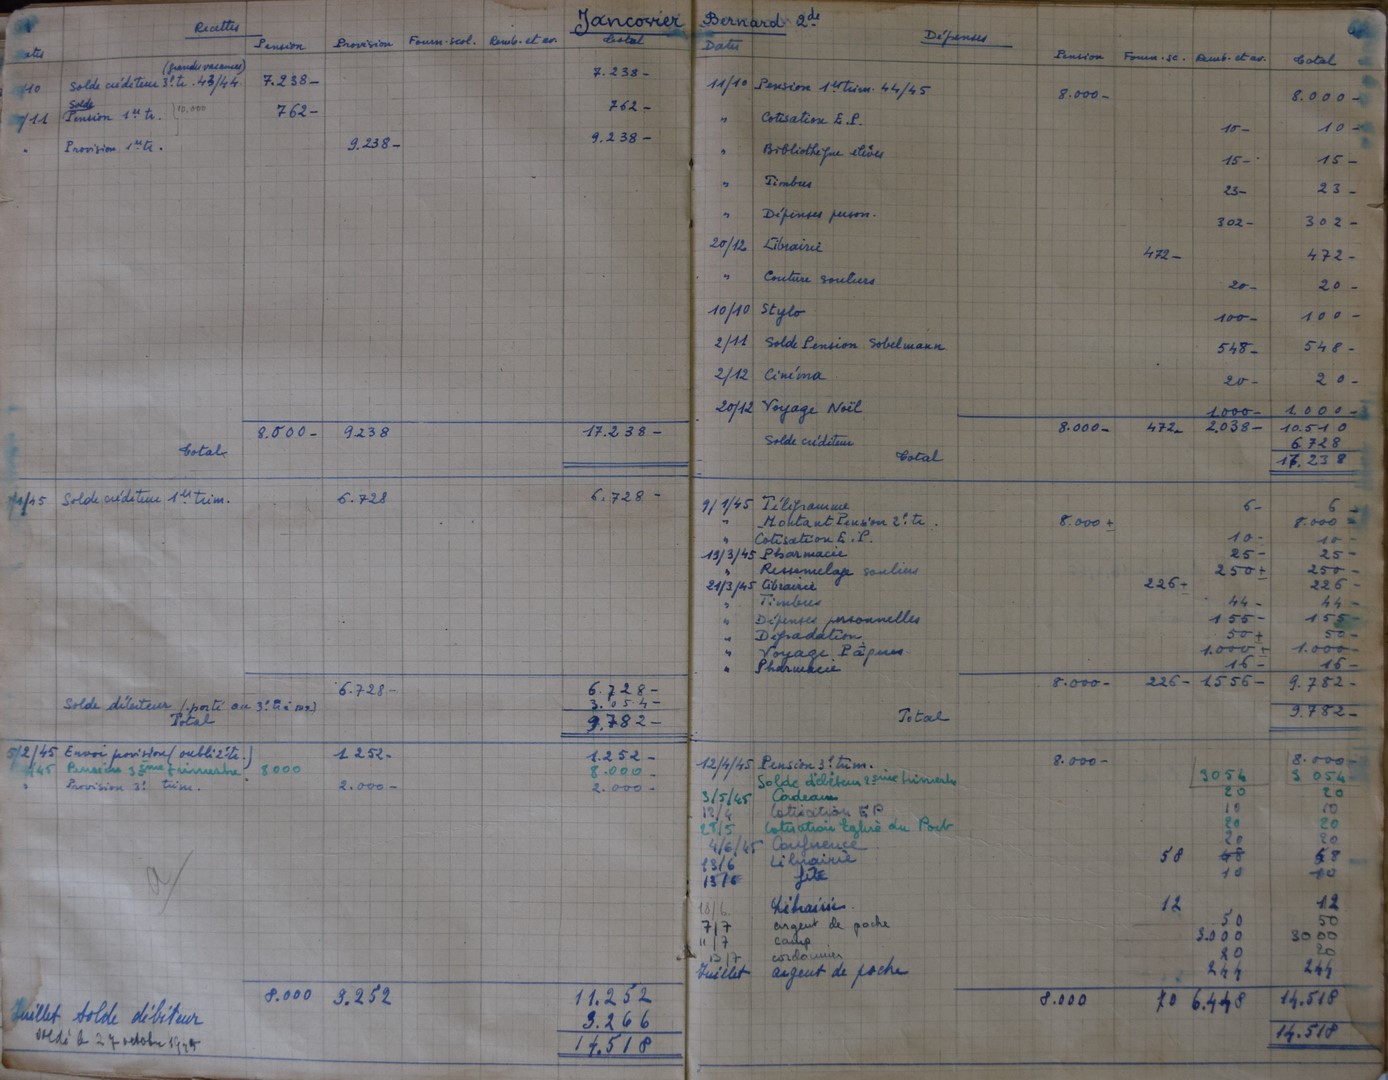 Jancovier Bernard 2de
Recettes
Pension Provision Fourn-scol. Remb. et av. Total
(grandes vacances)
/10 Solde créditeur 3e tr. 43/44 7.238- 7.238-
Solde
/11 Pension 1er tr. 10.000 762- 762-
" Provision 1er tr. 9.238- 9.238-
8.000- 9238 17.238-
Total
/45 Solde créditeur 1er trim. 6.728 6.728-
6.728- 6.728-
Solde débiteur (porté au 3e tr. ) 3.054-
Total 9.782-
5/2/45 Envoi provision (oubli 2e tr.) 1.252- 1.252-
/45 Pension 3ème trimestre 8000 8.000-
" Provision 3e trim. 2.000- 2.000-
a/
8.000 3.252 11.252
Juillet Solde débiteur 3.266
soldé le 27 octobre 1945 14.518
Dépenses
Dates Pension Fourn-sc. Remb. et av. Total
11/10 Pension 1er trim. 44/45 8.000- 8.000-
" Cotisation E.P. 10- 10-
" Bibliothèque élèves 15- 15-
" Timbres 23- 23-
" Dépenses person. 302- 302-
20/12 Librairie 472- 472-
" Couture souliers 20- 20-
10/10 Stylo 100- 100-
2/11 Solde Pension Sobelmann 548- 548-
2/12 Cinéma 20- 20-
20/12 Voyage Noël 1.000- 1.000-
8.000- 472- 2.038- 10.510
Solde créditeur 6.728
Total 17.238
9/1/45 Télégramme 6- 6-
" Montant Pension 2e tr. 8.000 8.000
" Cotisation E.P. 10- 10-
19/3/45 Pharmacie 25- 25-
" Ressemelage souliers 250 250-
21/3/45 Librairie 226 226-
" Timbres 44- 44-
" Dépenses personnelles 155- 155-
" Dégradation 50 50-
" Voyage Pâques 1.000 1.000-
" Pharmacie 16- 16-
8.000- 226- 1556- 9.782-
Total 9.782-
12/4/45 Pension 3e trim. 8.000- 8.000-
Solde débiteur 2ème trimestre 3054 3054
3/5/45 Cadeaux 20 20
12/4 Cotisation EP 10 10
27/5 Cotisation Eglise du Port 20 20
4/6/45 Conférence 20 20
13/6 Librairie 58 58
13/6 fête 10 10
18/6 Librairie. 12 12
7/7 argent de poche 50 50
11/7 camp 3.000 3000
13/7 cordonnier 20 20
Juillet argent de poche 244 244
8.000 70 6.448 14.518
14.518